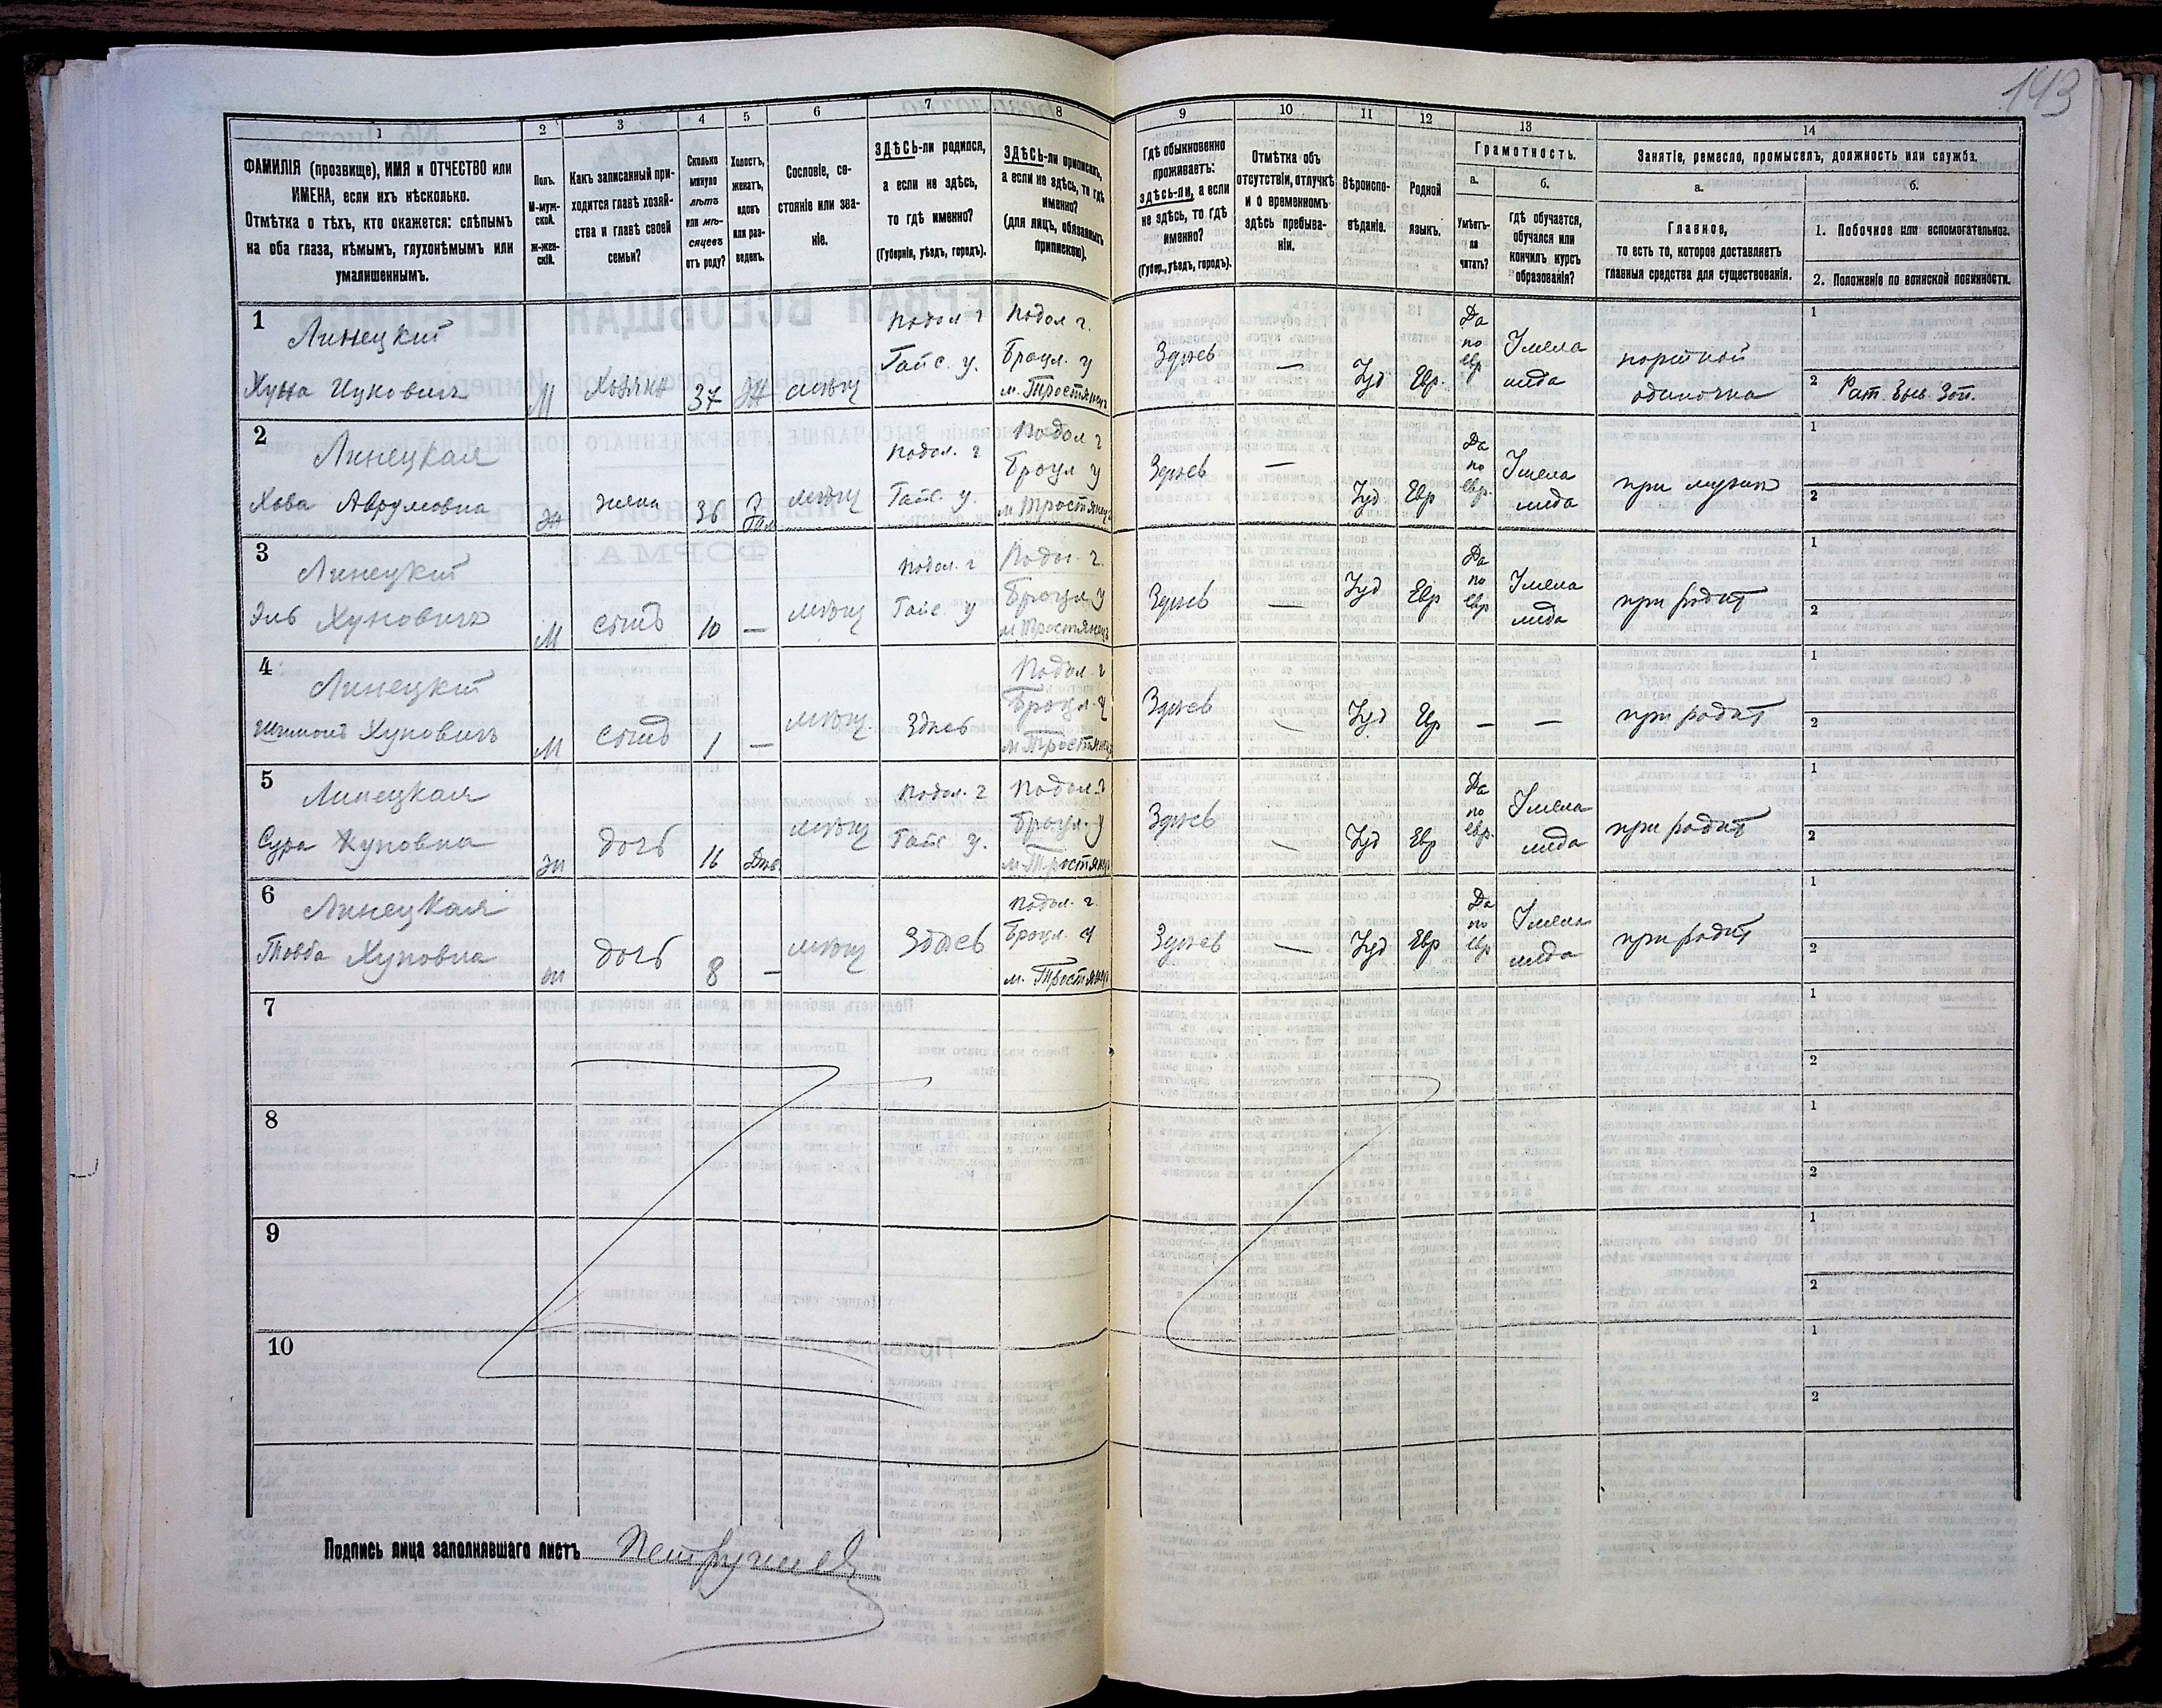 143
1
ФАМИЛІЯ (прозвище), ИМЯ и ОТЧЕСТВО или
ИМЕНА, если ихъ нѣсколько.
Отмѣтка о тѣхъ, кто окажется: слѣпымъ
на оба глаза, нѣмымъ, глухонѣмымъ или
умалишеннымъ.
2
Полъ.
М-муж-
ской.
Ж-жен-
скій.
3
Какъ записанный при-
ходится главѣ хозяй-
ства и главѣ своей
семьи?
4
Сколько
минуло
лѣтъ
или мѣ-
сяцевъ
отъ роду?
5
Холостъ,
женатъ,
вдовъ
или раз-
веденъ.
6
Сословіе, со-
стояніе или зва-
ніе.
7
ЗДѢСЬ-ли родился,
а если не здѣсь,
то гдѣ именно?
(Губернія, уѣздъ, городъ).
8
ЗДѢСЬ-ли приписанъ,
а если не здѣсь, то гдѣ
именно?
(для лицъ, обязанныхъ
припискою).
9
Гдѣ обыкновенно
проживаетъ:
здѣсь-ли, а если
не здѣсь, то гдѣ
именно?
(Губер., уѣздъ, городъ).
10
Отмѣтка объ
отсутствіи, отлучкѣ
и о временномъ
здѣсь пребыва-
ніи.
11
Вѣроиспо-
вѣданіе.
12
Родной
языкъ.
13
Грамотность.
а.
Умѣетъ-
ли
читать?
б.
гдѣ обучается,
обучался или
кончилъ курсъ
образованія?
14
Занятіе, ремесло, промыселъ, должность или служба.
а.
Главное,
то есть то, которое доставляетъ
главныя средства для существованія.
б.
1. Побочное или вспомогательное.
2. Положеніе по воинской повинности.
1
Линецкій
Хуна Ицковичъ
М
Хозяинъ
37
Ж
мѣщ
Подол г
Гайс. у.
Подол г.
Брацл. у
м. Тростянец
Здѣсь
—
Іуд
Евр.
Да
по
евр
портной
одиночка
1
2
2
Линецкая
Хова Аврумовна
Ж
жена
36
мѣщ
Подол. г
Гайс. у.
Подол г
Брацл у
м Тростянец
Здѣсь
—
Іуд
Евр
Да
по
евр.
при мужѣ
1
2
3
Линецкій
Эль Хуновичъ
М
сынъ
10
—
мѣщ
Подол. г
Гайс. у
Подол. г.
Брацл у
м Тростянец
Здѣсь
—
Іуд
Евр
Да
по
евр
при родит
1
2
4
Линецкій
Хуновичъ
М
сынъ
1
—
мѣщ.
Здѣсь
Подол. г
Брацл. у
м Тростянец
Здѣсь
—
Іуд
Евр
—
—
при родит
1
2
5
Линецкая
Сура Хуновна
ж
дочь
16
Дѣв.
мѣщ
Подол. г
Гайс у.
Подол. г
Брацл. у
м. Тростянец
Здѣсь
—
Іуд
Евр
Да
по
евр.
при родит
1
2
6
Линецкая
Товба Хуновна
ж
дочь
8
—
мѣщ
Здѣсь
Подол. г.
Брацл. у
м. Тростянец
Здѣсь
—
Іуд
Евр
Да
по
евр
при родит
1
2
7
1
2
8
1
2
9
1
2
10
1
2
Подпись лица заполнявшаго листъ